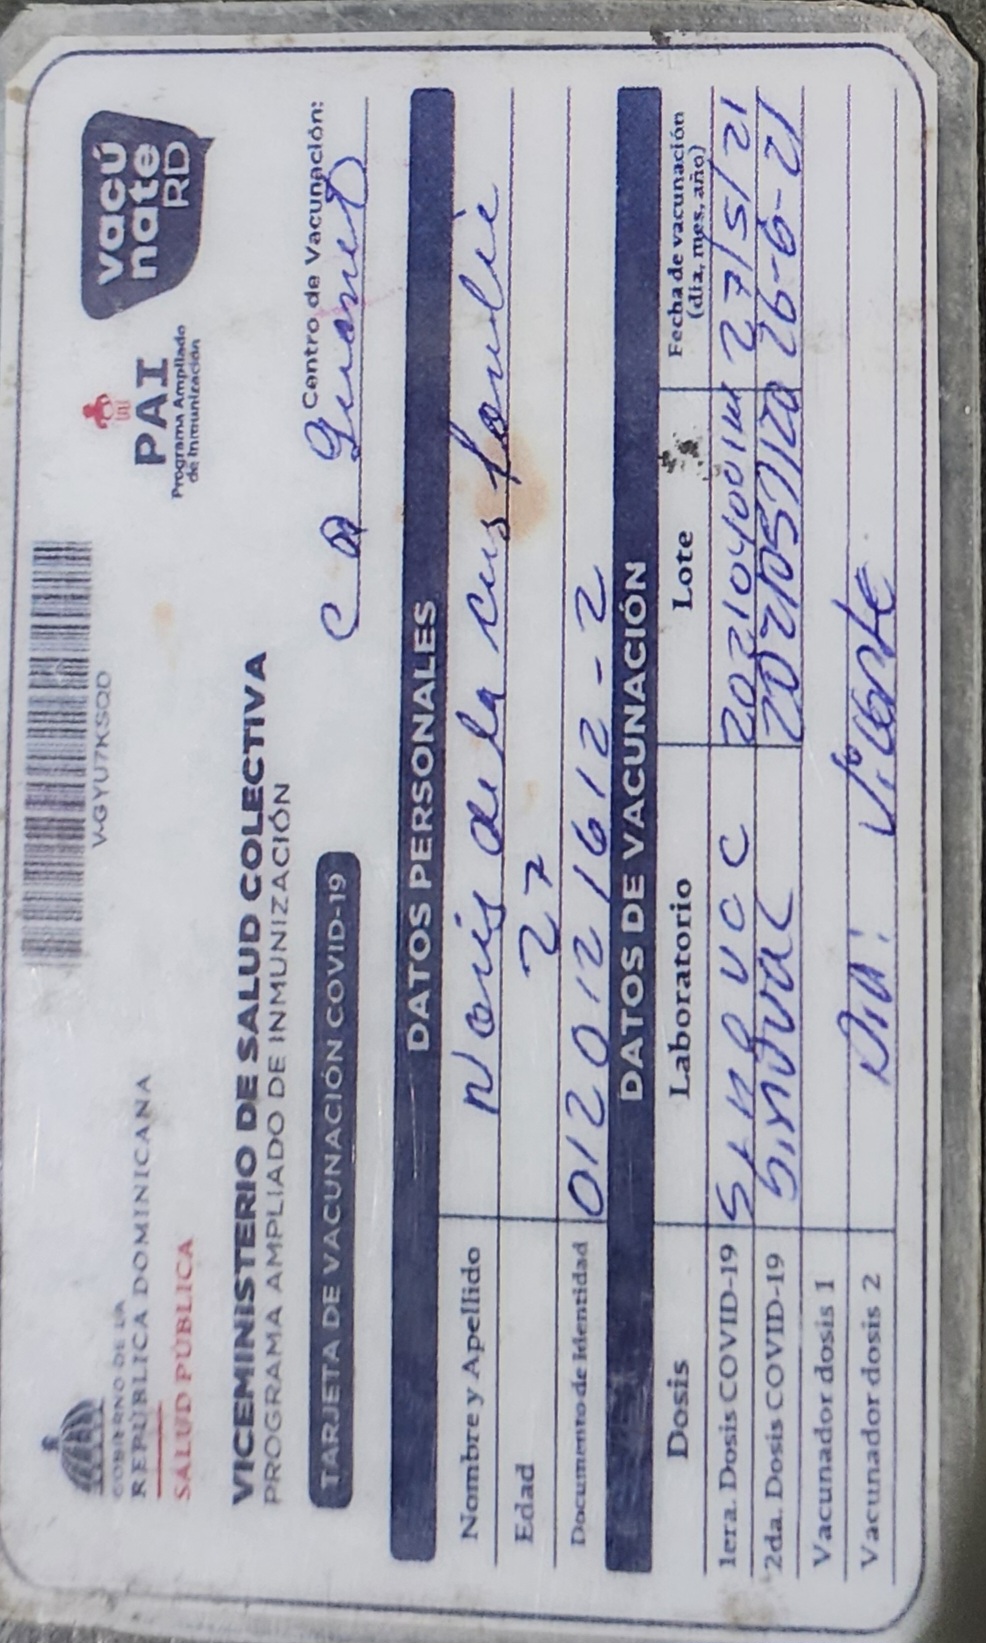 GOBIERNO DE LA
REPÚBLICA DOMINICANA
SALUD PÚBLICA
V-GYU7KSQD
PAI
Programa Ampliado
de Inmunización
vacú
nate
RD
VICEMINISTERIO DE SALUD COLECTIVA
PROGRAMA AMPLIADO DE INMUNIZACIÓN
TARJETA DE VACUNACIÓN COVID-19
Centro de Vacunación:
DATOS PERSONALES
Nombre y Apellido Noris de la cus
Edad 27
Documento de Identidad 012 012 1612-2
DATOS DE VACUNACIÓN
Dosis Laboratorio Lote Fecha de vacunación
(día, mes, año)
1era. Dosis COVID-19 27/5/21
2da. Dosis COVID-19 Sinovac 26-6-21
Vacunador dosis 1
Vacunador dosis 2 Vicente